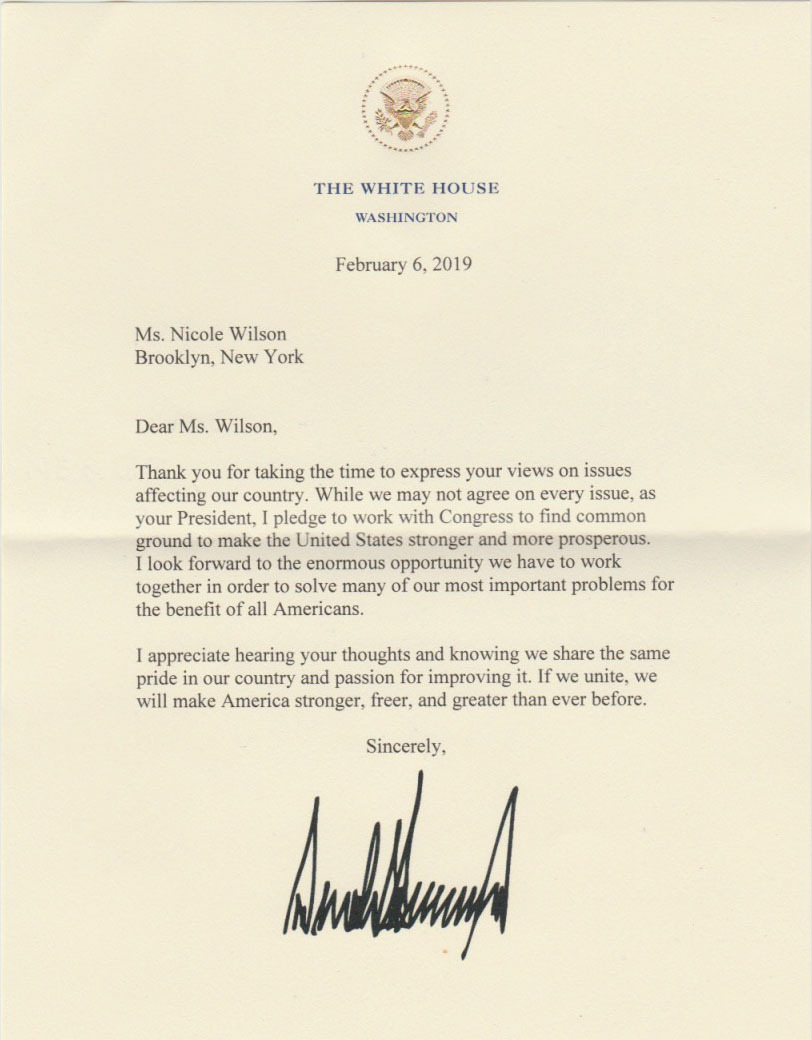 THE WHITE HOUSE
WASHINGTON
February 6, 2019
Ms. Nicole Wilson
Brooklyn, New York
Dear Ms. Wilson,
Thank you for taking the time to express your views on issues
affecting our country. While we may not agree on every issue, as
your President, I pledge to work with Congress to find common
ground to make the United States stronger and more prosperous.
I look forward to the enormous opportunity we have to work
together in order to solve many of our most important problems for
the benefit of all Americans.
I appreciate hearing your thoughts and knowing we share the same
pride in our country and passion for improving it. If we unite, we
will make America stronger, freer, and greater than ever before.
Sincerely,